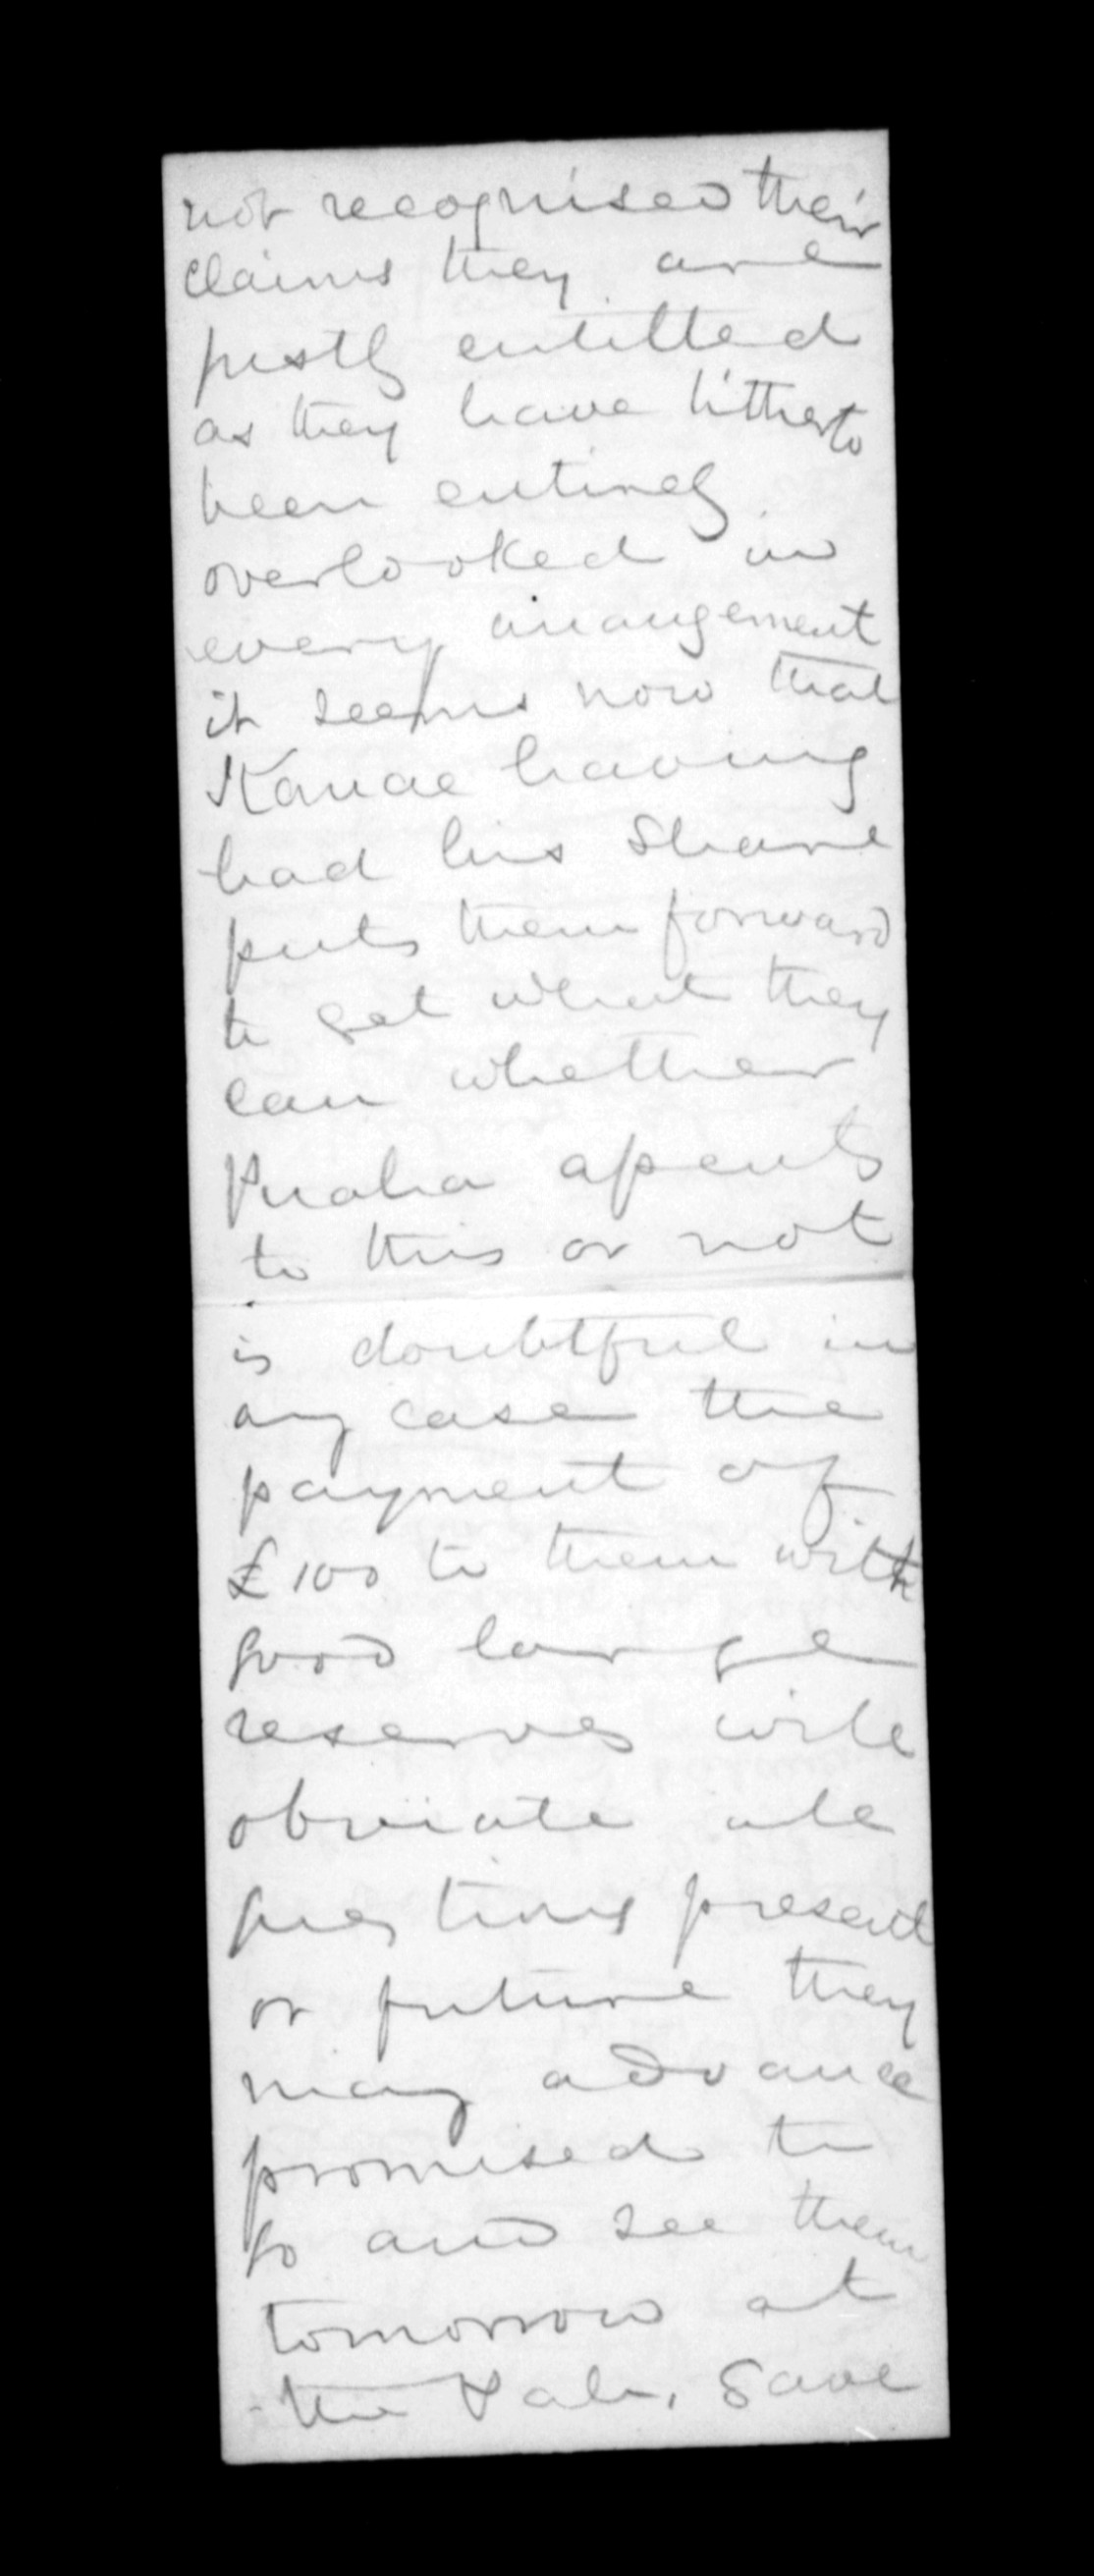 not recognised their
claims they are
justly entitled
as they have hitherto
been entirely
overlooked in
every arrangement
it seems now that
Karuae having
had his share
puts them forward
to get what they
can whether
Puaha assents
to this or not
is doubtful in
any case the
payment of
£100 to them with
good large
reserves will
obviate all
questions present
or future they
may advance
promised to
go and see them
tomorrow at
the Pah. Gave